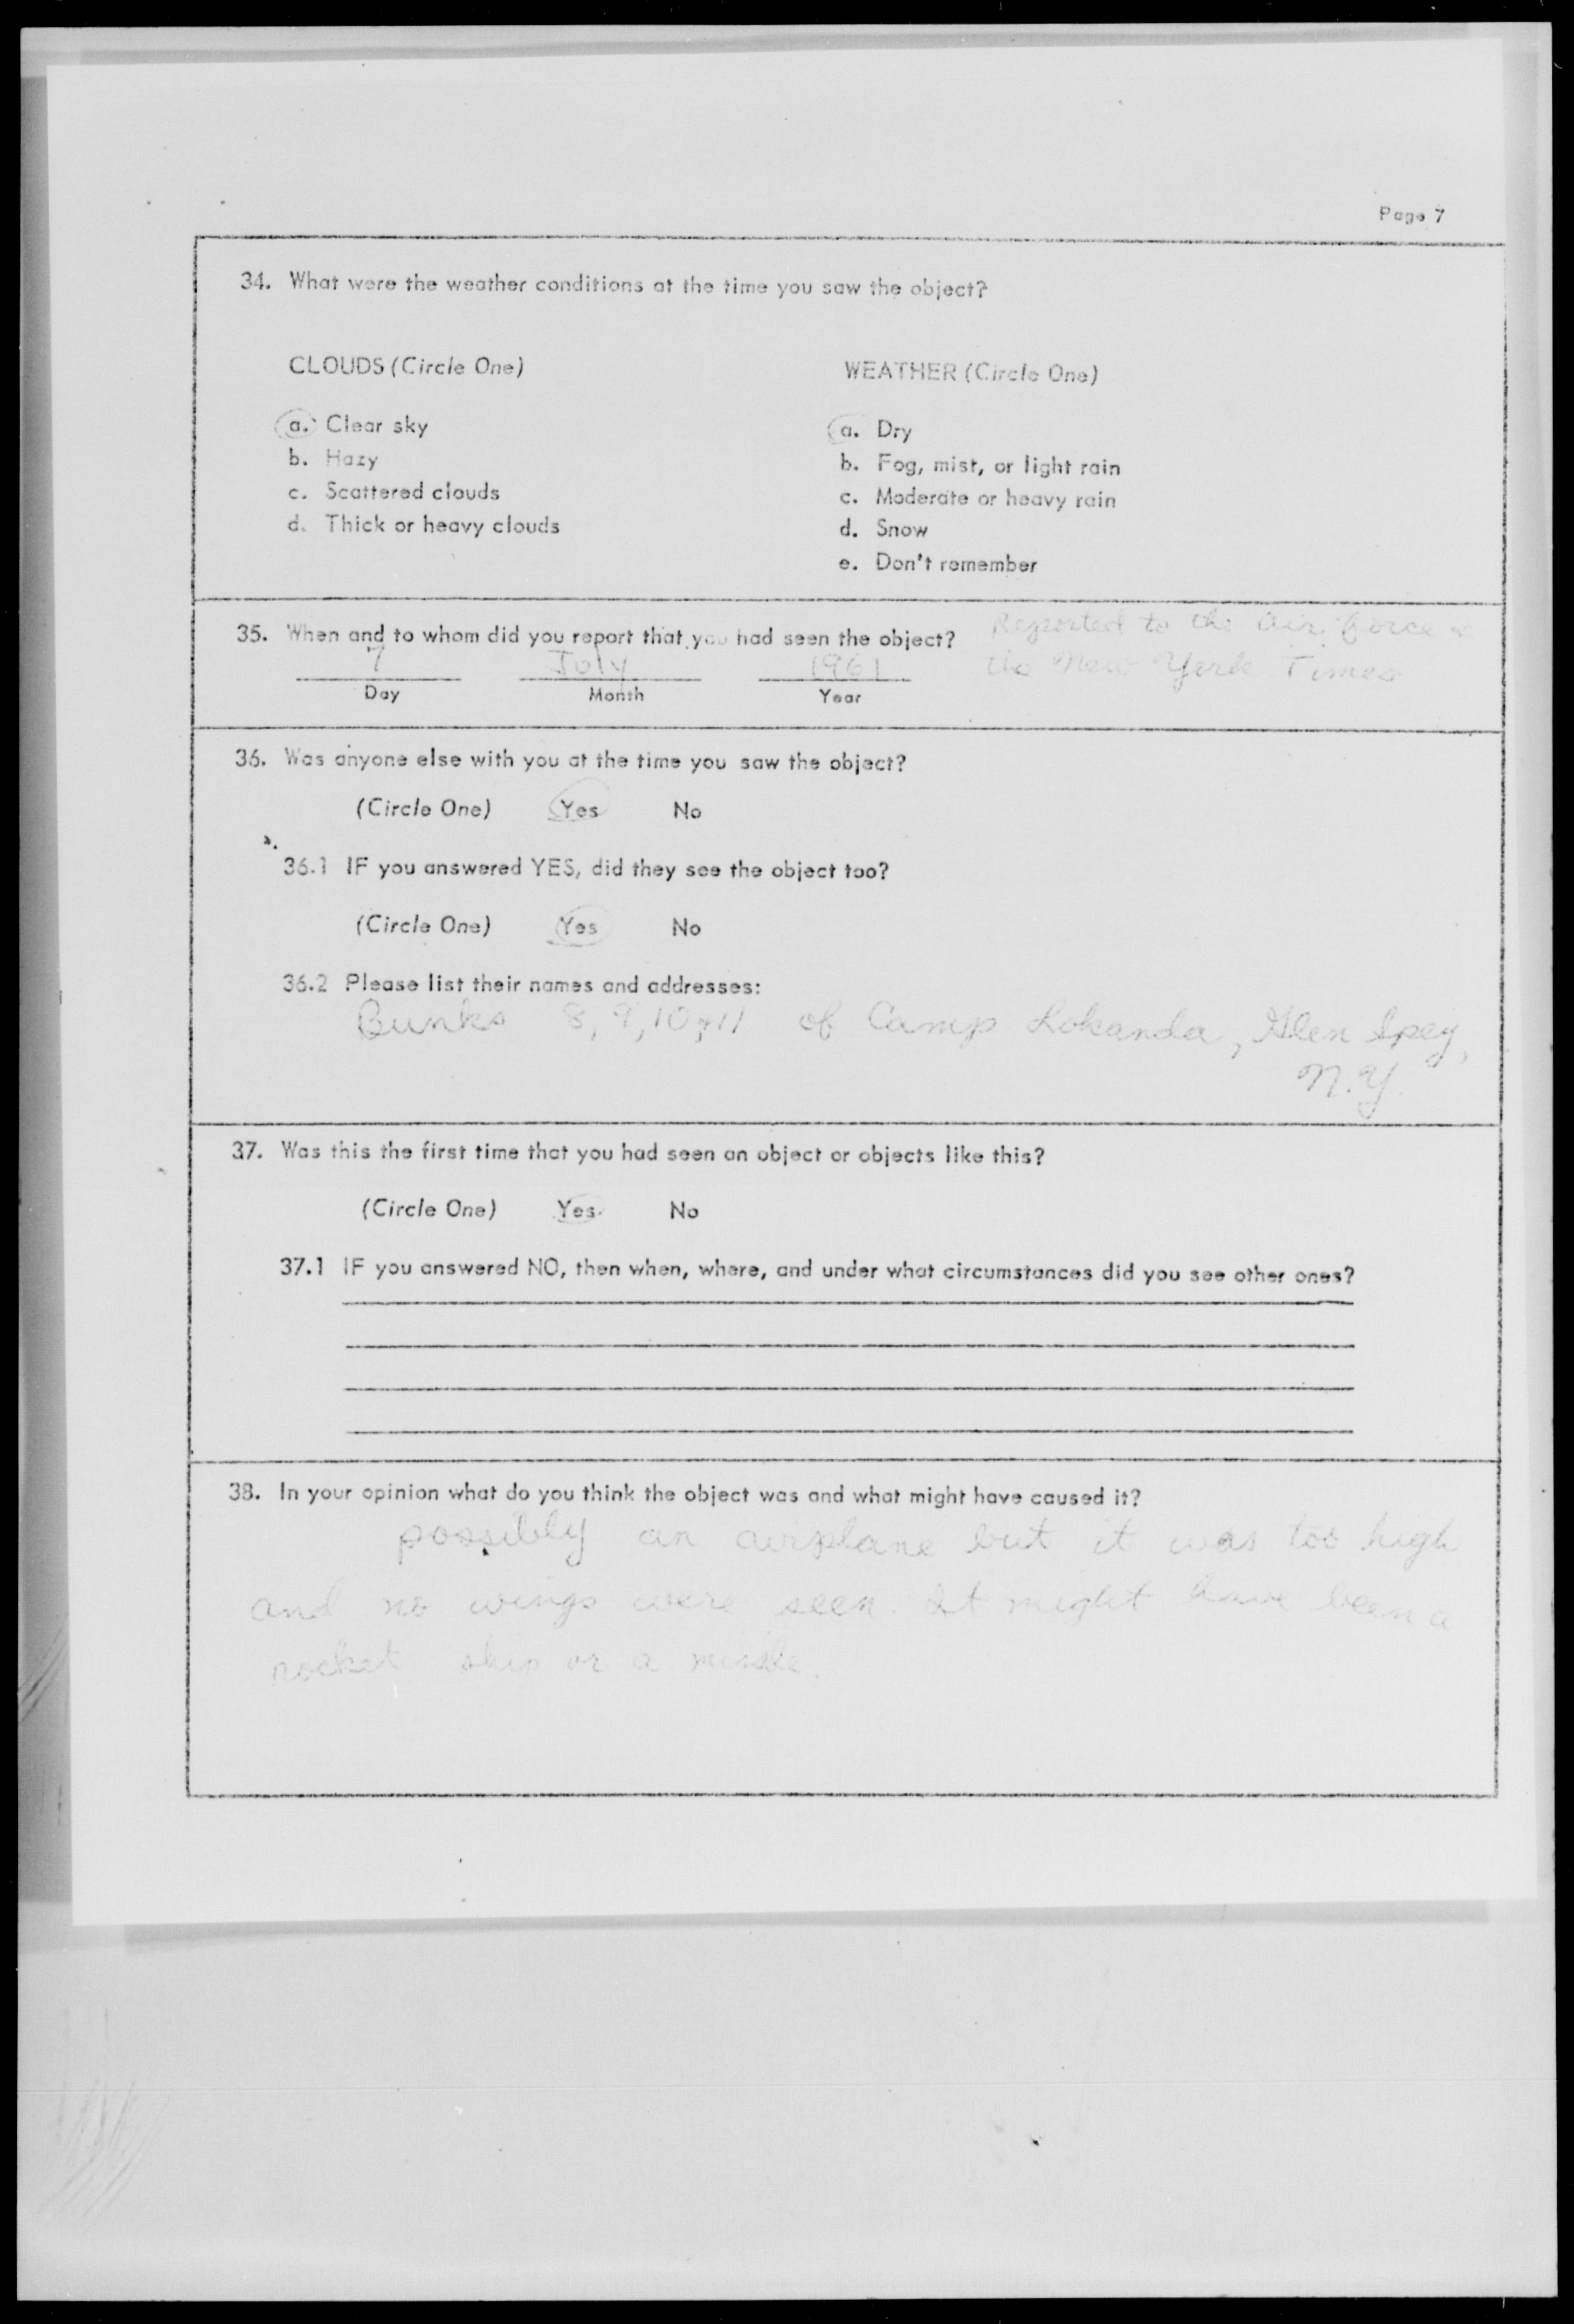 Page 7
34. What were the weather conditions at the time you saw the object?
CLOUDS (Circle One)
a. Clear sky
b. Hazy
c. Scattered clouds
d. Thick or heavy clouds
WEATHER (Circle One)
a. Dry
b. Fog, mist, or light rain
c. Moderate or heavy rain
d. Snow
e. Don't remember
35. When and to whom did you report that you had seen the object?
Reported to the air force &
the New York Times
7 July 1961
Day Month Year
36. Was anyone else with you at the time you saw the object?
(Circle One) Yes No
36.1 IF you answered YES, did they see the object too?
(Circle One) Yes No
36.2 Please list their names and addresses:
Bunks 8, 9, 10, & 11 of Camp Lokanda, Glen Spey,
N.Y.
37. Was this the first time that you had seen an object or objects like this?
(Circle One) Yes No
37.1 IF you answered NO, then when, where, and under what circumstances did you see other ones?
38. In your opinion what do you think the object was and what might have caused it?
possibly an airplane but it was too high
and no wings were seen. It might have been a
rocket ship or a missle.